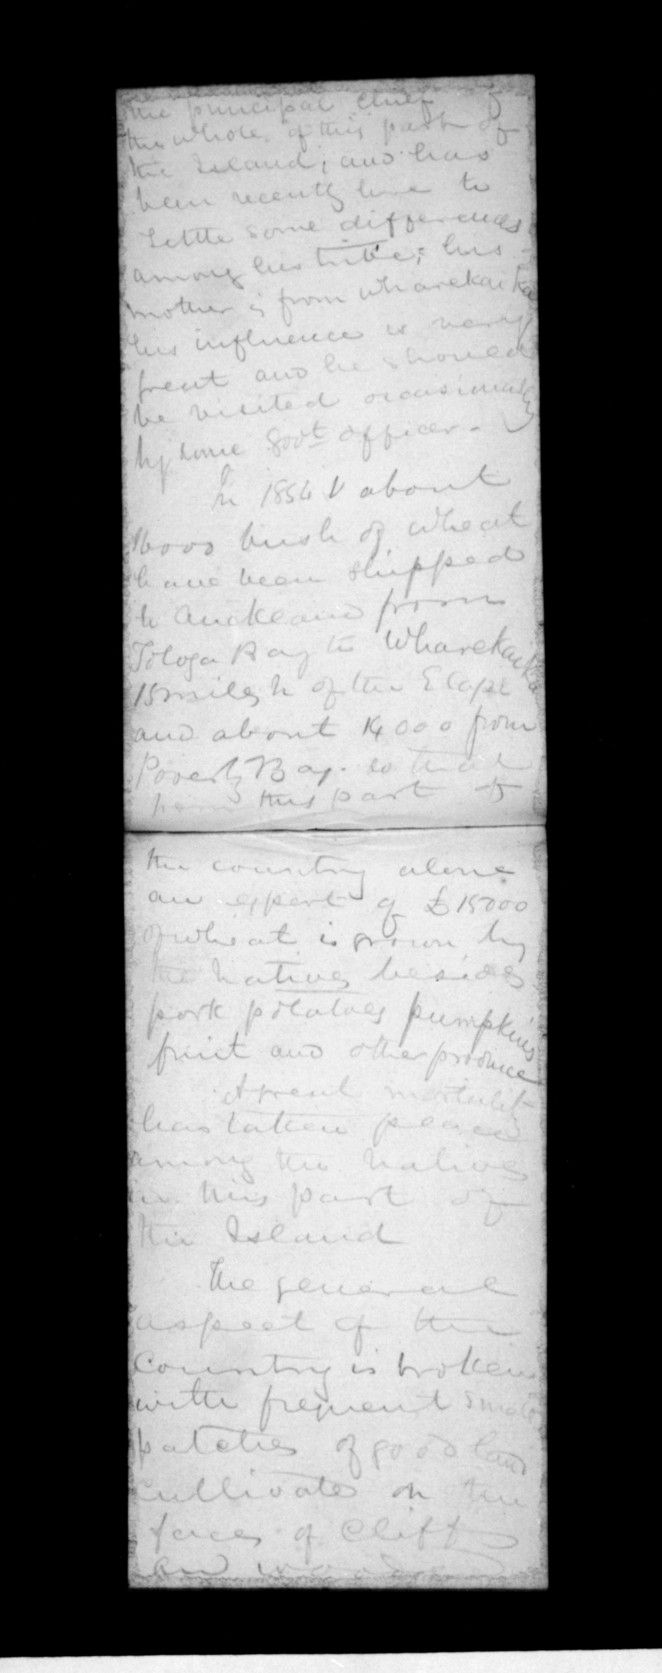 the principal chief of
the whole of this part of
the Island; and has
been recently here to
settle some differences
among his tribe; his
mother is from Wharekaika
his influence is very
great and he should
be visited occasionally
by some Govt officer.
In 1854 about
16000 bush of wheat
have been shipped
to Auckland from
Tologa Bay to Wharekaika
15 miles N of the E Cape
and about 14000 from
Poverty Bay. so that
from this part of
the country alone
an export of £15000
of wheat is grown by
the Natives besides
pork potatoes pumpkins
fruit and other produce
A great mortality
has taken place
among the Natives
in this part of
the Island
The general
aspect of the
Country is broken
with frequent small
patches of good land
cultivated on the
faces of Cliffs
and